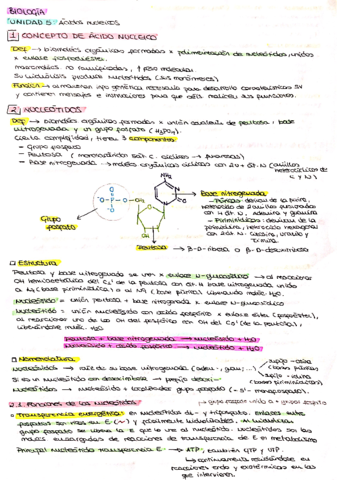 BIOLOGÍA
UNIDAD 5: ÁCIDOS NUCLEICOS
1 CONCEPTO DE ÁCIDO NUCLEICO
Def → biomoléc orgánicas formadas x polimerización de nucleótidos, unidos
x enlace fosfodiéster.
macromoléc no ramificadas, ↑ peso molecular.
Su hidrólisis produce nucleótidos (sus monómeros)
Función → almacenan info genética necesaria para desarrollo características SV
y contiene mensajes e instrucciones para que céls realicen sus funciones.
2 NUCLEÓTIDOS
Def → biomoléc orgánicas formadas x unión covalente de pentosa, base
nitrogenada y un grupo fosfato (H₃PO₄).
Cierta complejidad, tienen 3 componentes
- Grupo fosfato
- Pentosa (monosacárido 5 át. C cíclicos → furanosas)
- Base nitrogenada → moléc orgánicas cíclicas con 2 o + át. N (anillos
heterocíclicos de
C y N)
NH₂
Base nitrogenada
- Púricas: derivan de la purina,
con 4 át. N. Adenina y guanina
- Pirimidínicas: derivan de la
pirimidina, heterociclo hexagonal
con 2 át. N. Citosina, uracilo y
Timina
Grupo
fosfato
Pentosa → β-D-ribosa o β-D-desoxirribosa
Estructura
Pentosa y base nitrogenada se unen x enlace N-glucosídico → al reaccionar
OH hemiacetálico del C₁' de la pentosa con át. H base nitrogenada unido
a N₁ (base pirimidínica) o al N₉ (base púrica), liberando moléc. H₂O.
Nucleósido = unión pentosa + base nitrogenada x enlace N-glucosídico
Nucleótido = unión nucleósido con ácido fosfórico x enlace éster (fosfoéster),
al reaccionar uno de los OH del fosfórico con OH del C₅' (de la pentosa),
liberándose moléc. H₂O.
Pentosa + base nitrogenada → nucleósido + H₂O
Nucleósido + ácido fosfórico → nucleótido + H₂O
Nomenclatura
Nucleósidos → raíz de su base nitrogenada (aden-, guan-, ...) sufijo -osina
(bases púricas)
sufijo -idina
(bases pirimidínicas)
Si es un nucleósido con desoxirribosa → prefijo desoxi-
Nucleótidos → nucleósido + localizador grupo fosfato (-5'- monofosfato).
2.1. Funciones de los nucleótidos
Transferencia energética: en nucleótidos di- y trifosfato, enlaces entre
fosfatos son ricos en E (~) y fácilmente hidrolizables. Al hidrolizar
grupo fosfato se libera la E que lo une al nucleótido. Nucleótidos son las
moléc encargadas de reacciones de transferencia de E en metabolismo
Principal nucleótido transferencia E → ATP, también GTP y UTP.
↳ continuamente resintetizándose en
reacciones endo y exotérmicas en las
que intervienen.